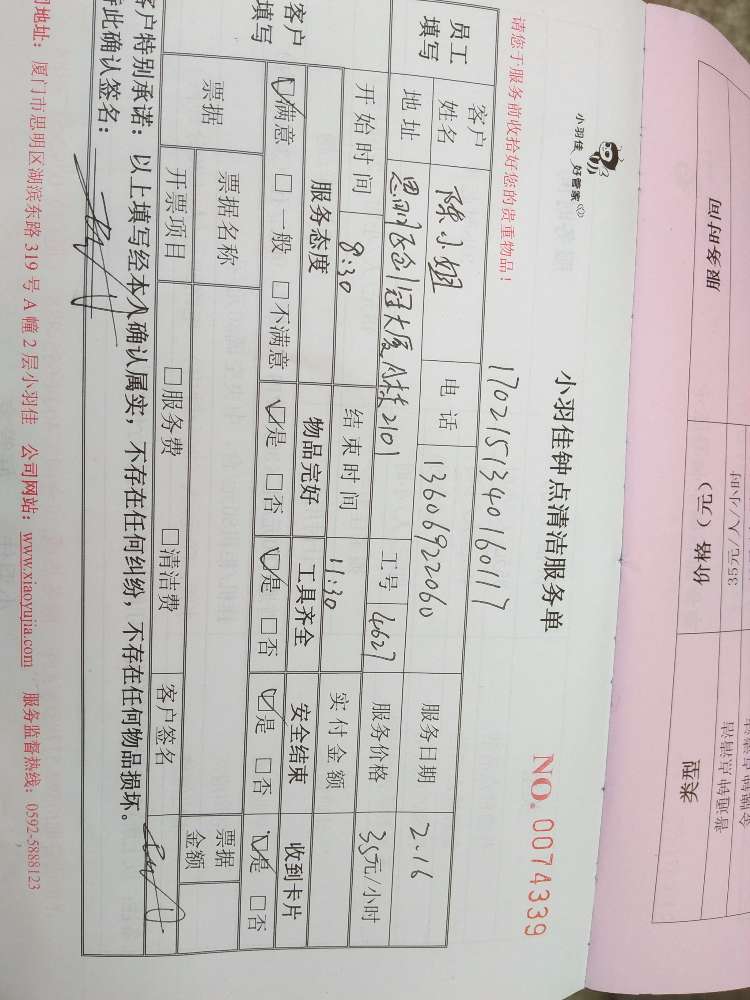 小羽佳 好管家
小羽佳钟点清洁服务单
NO. 0074339
请您于服务前收拾好您的贵重物品！
1702151340160117
员工填写
客户姓名 陈小姐 电话 13606922060 服务日期 2.16
地址 思明区创冠大厦A栋2101 工号 4627 服务价格 35元/小时
开始时间 8:30 结束时间 11:30 实付金额
客户填写
服务态度 物品完好 工具齐全 安全结束 收到卡片
☑满意 □一般 □不满意 ☑是 □否 ☑是 □否 ☑是 □否 ☑是 □否
票据 票据名称 票据金额
开票项目 □服务费 □清洁费 客户签名
客户特别承诺：以上填写经本人确认属实，不存在任何纠纷，不存在任何物品损坏。
此确认签名：
地址：厦门市思明区湖滨东路 319 号 A 幢 2 层小羽佳 公司网站：www.xiaoyujia.com 服务监督热线：0592-5888123
服务时间 价格（元） 类型
35元/人/小时